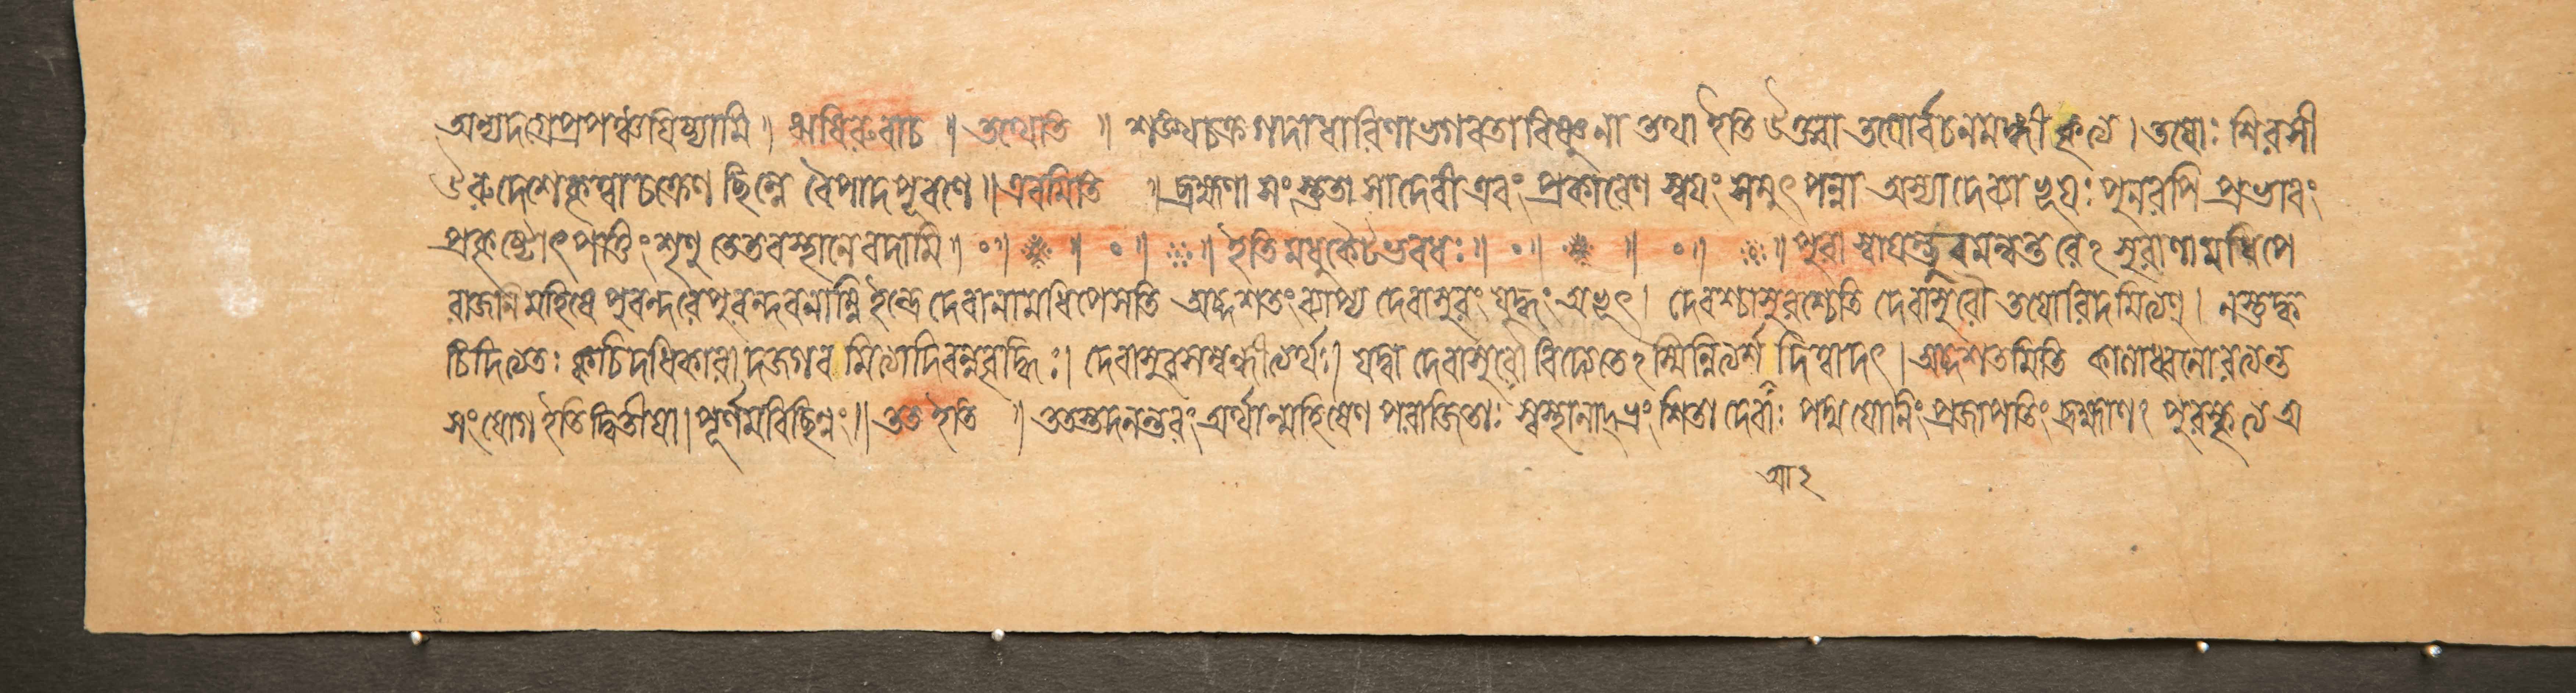 অন্যদগ্রেপ্রপঞ্চযিষ্যামি॥ ঋষিরুবাচ ॥ তথেতি ॥ শঙ্খচক্রগদাধারিণাভগবতাবিষ্ণুনা তথা ইতি উক্ত্বা তযোর্বচনমঙ্গীকৃত্য। তযোঃ শিরসী
ঊরুদেশেকৃত্বাচক্রেণ ছিন্নে বৈপাদপূরণে॥ এবমিতি ॥ ব্রহ্মণা সংস্তুতা সাদেবী এবং প্রকারেণ স্বযং সমুৎপন্না অস্যাদেব্যা ভূযঃ পুনরপি প্রভাবং
প্রকৃষ্টোৎপত্তিং শৃণু তেতবস্থানেবদামি॥ ॰॥ ॥ ॰॥ ॥ ইতি মধুকৈটভবধঃ॥ ॰॥ ॥ ॰॥ ॥ পুরা স্বাযম্ভুবমন্বন্তরেঽসুরাণামধিপে
রাজনিমহিষে পুরন্দরেপুরন্দরনাম্নি ইন্দ্রে দেবানামধিপেসতি অব্দশতংব্যাপ্য দেবাসুরং যুদ্ধং অভূৎ। দেবশ্চাসুরশ্চেতি দেবাসুরৌ তযোরিদমিত্যণ্।
চিদিত্যতঃ ক্বচিদধিকারা দিত্যাদিবন্নবৃদ্ধিঃ। দেবাসুরসম্বন্ধীত্যর্থঃ। যদ্বা দেবাসুরৌ বিদ্যেতেঽস্মিন্নিত্যর্শ আদিত্বাদৎ। অব্দশতমিতি কালাধ্বনোরত্যন্ত
সংযোগ ইতি দ্বিতীযা। পূর্ণমবিছিন্নং॥ তত ইতি ॥ ততস্তদনন্তরং অর্থান্মহিষেণ পরাজিতাঃ স্বস্থানাদ্ভ্রংশিতা দেবাঃ পদ্মযোনিং প্রজাপতিং ব্রহ্মাণং পুরস্কৃত্য অ